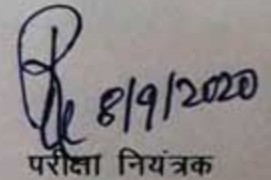 8/9/2020
परीक्षा नियंत्रक